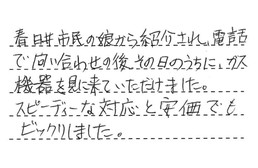 春日井市民の娘から紹介され、電話
で問い合わせの後、その日のうちに、ガス
機器を見に来ていただけました。
スピーディーな対応と安価でも
ビックリしました。